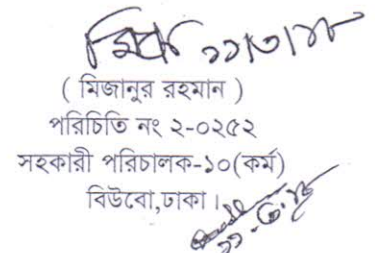 ১১/৩/১৮
( মিজানুর রহমান )
পরিচিতি নং ২-০২৫২
সহকারী পরিচালক-১০(কর্ম)
বিউবো,ঢাকা।